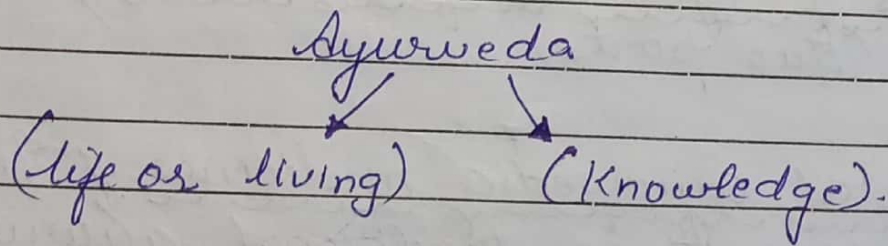 Ayurveda
(life or living) (Knowledge).